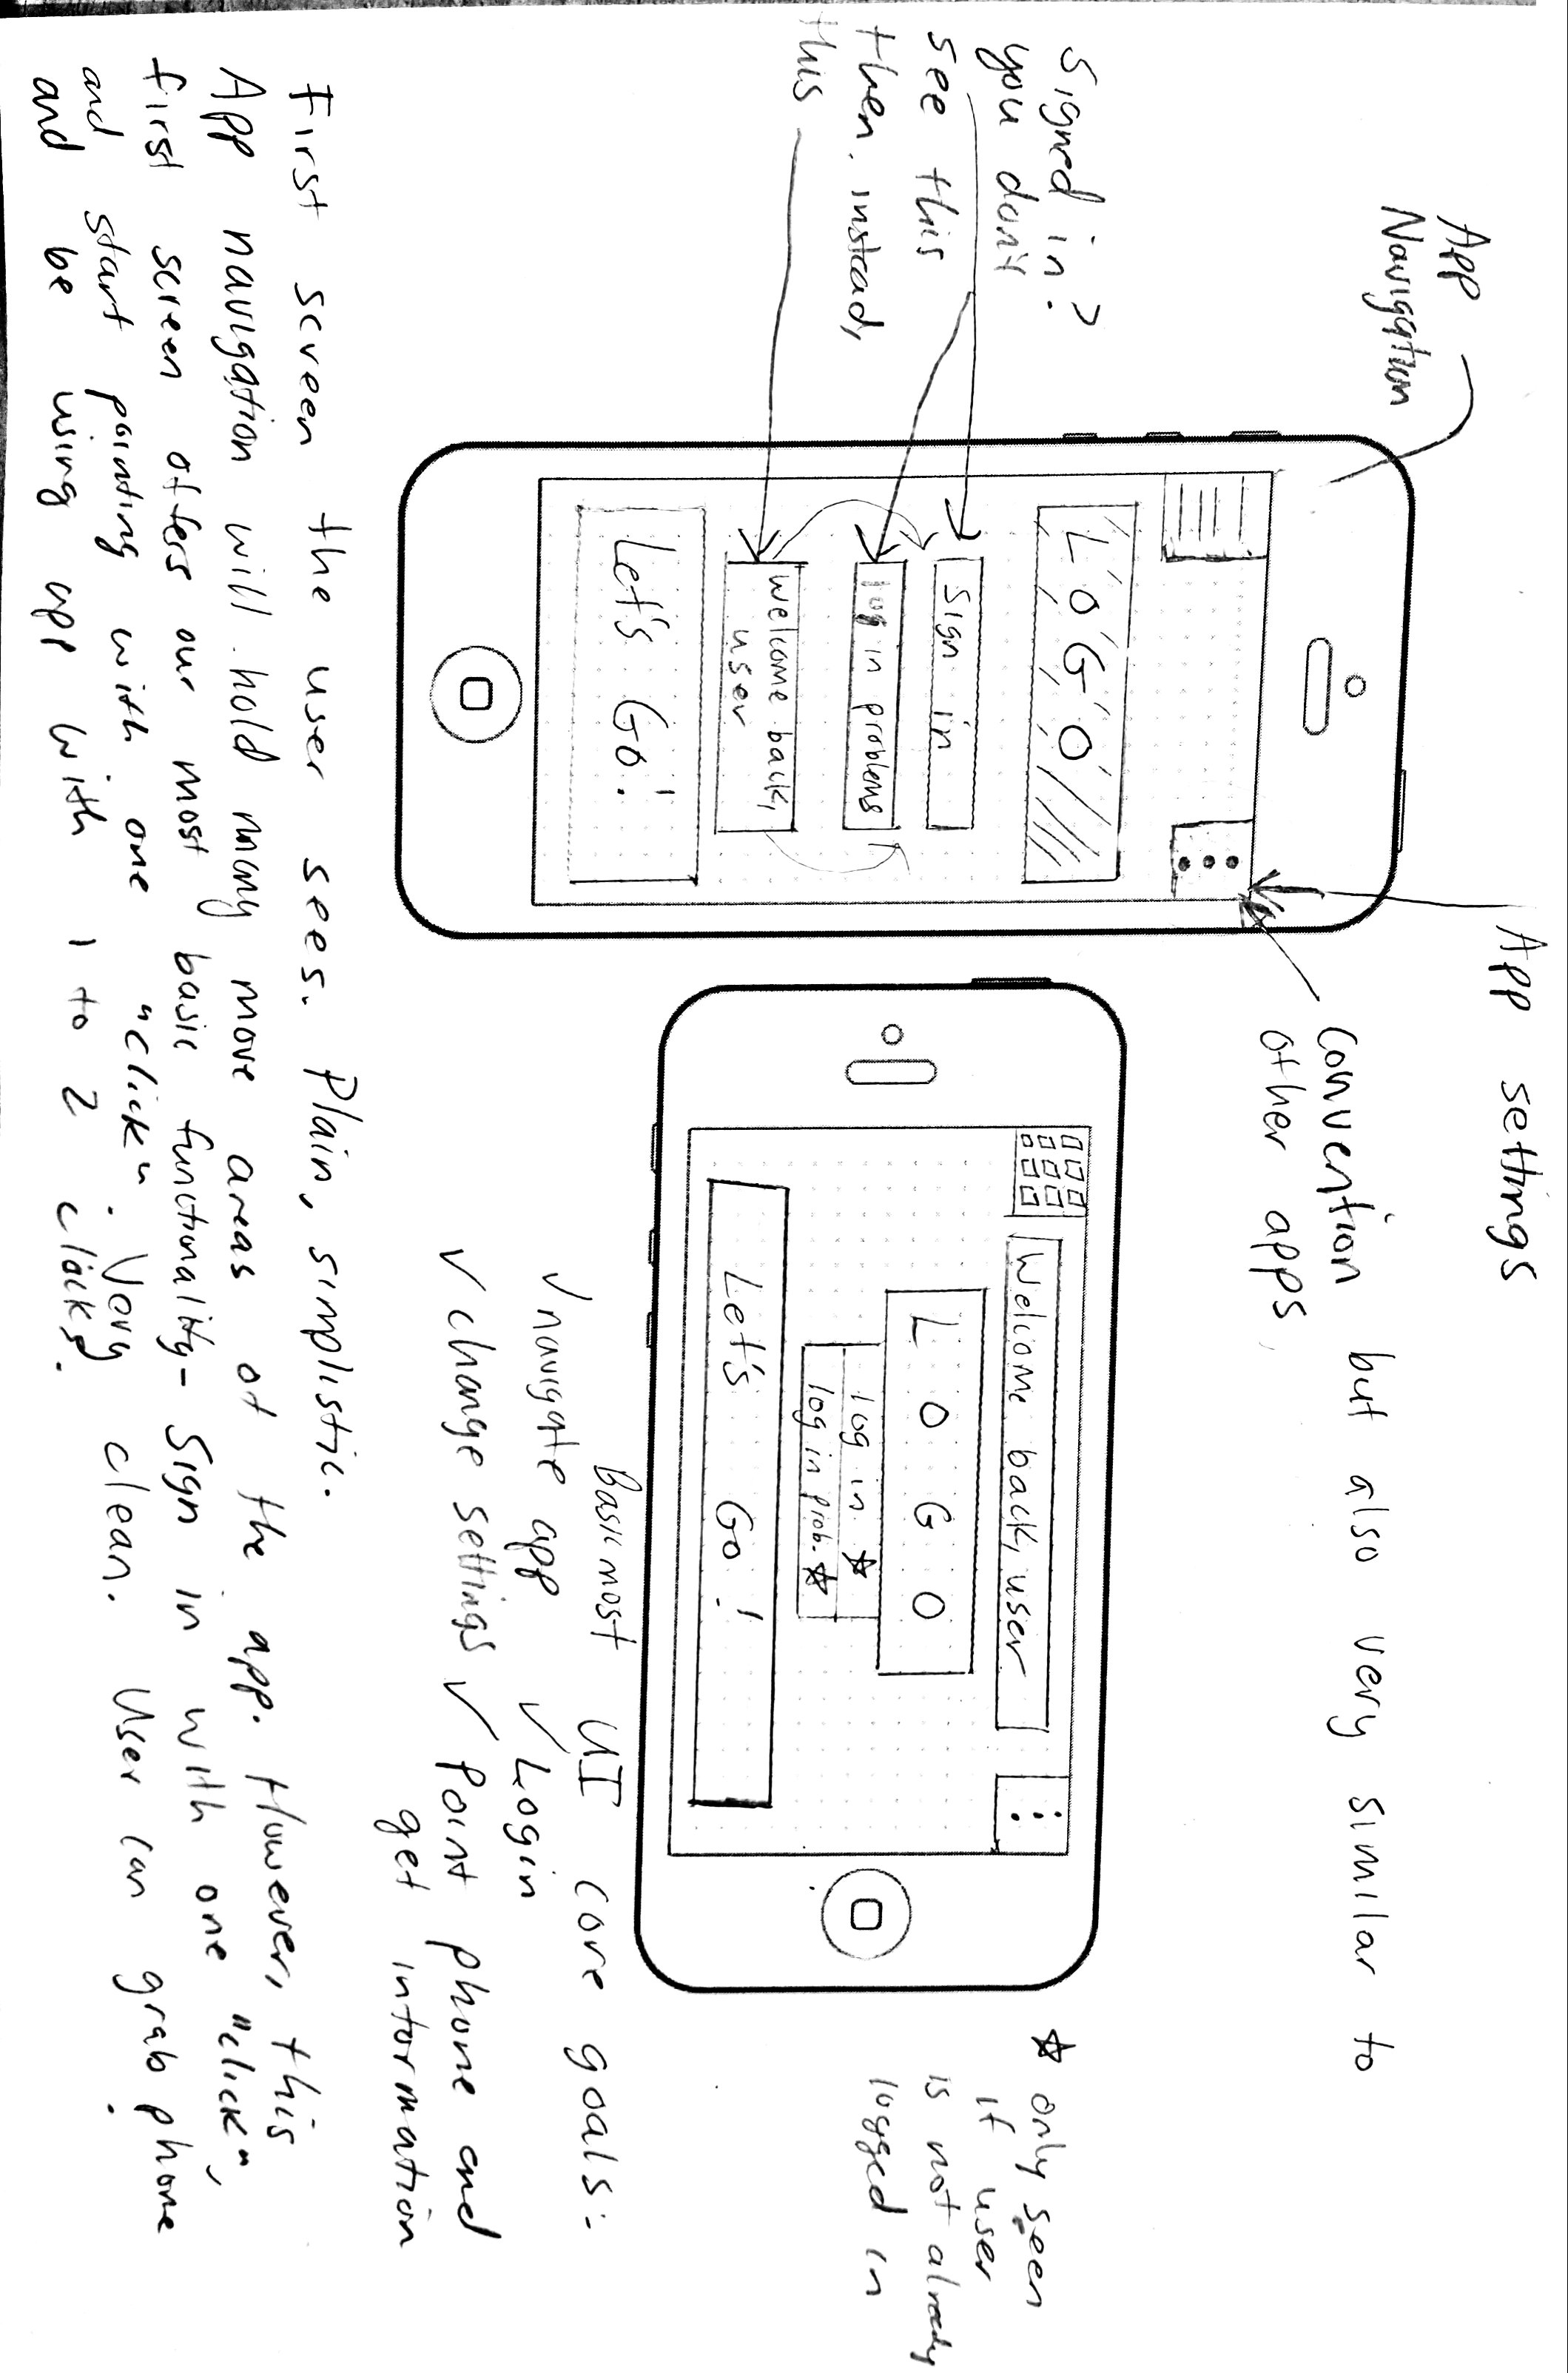 App
Navigation
App settings
Convention but also very similar to
other apps.
Signed in?
you don't
see this
then, instead,
this
LOGO
Sign in
log in problems
welcome back,
user
Let's Go!
Welcome back, user
LOGO
log in ☆
log in prob. ☆
Let's Go!
☆ only seen
if user
is not already
logged in
Basic most UI core goals:
✓ navigate app ✓ Login
✓ change settings ✓ Point phone and
get information
First screen the user sees. Plain, simplistic.
App navigation will hold many more areas of the app. However, this
first screen offers our most basic functionality - Sign in with one "click",
and start pointing with one "click". Very clean. User can grab phone
and be using app with 1 to 2 clicks.